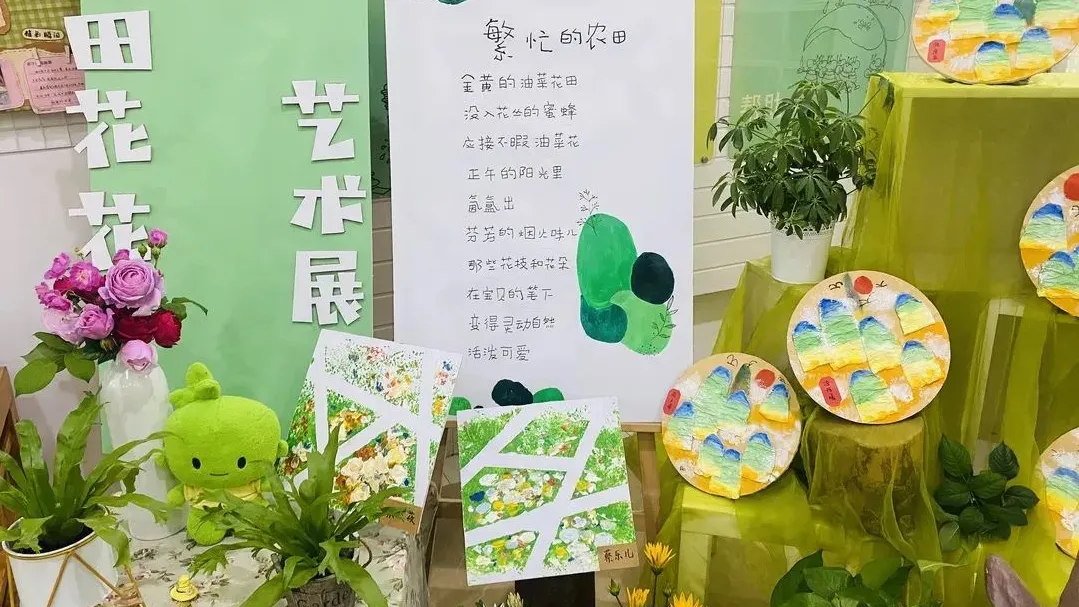 田花花
艺术展
繁忙的农田
金黄的油菜花田
没入花丛的蜜蜂
应接不暇油菜花
正午的阳光里
氤氲出
芬芳的烟火味儿
那些花枝和花朵
在宝贝的笔下
变得灵动自然
活泼可爱
蔡乐儿